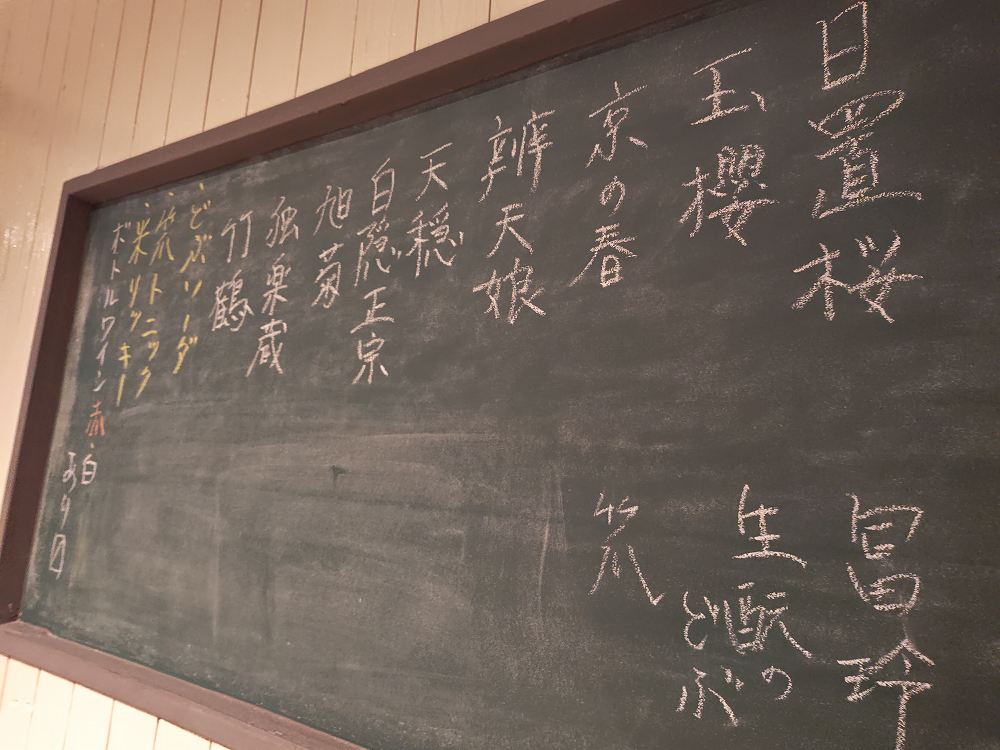 日置桜
玉櫻
京の春
辨天娘
天穏
白隠正宗
旭菊
独楽蔵
竹鶴
冨玲
生酛の
どぶ
笊
・どぶソーダ
・笊トニック
・米リッキー
ボトルワイン赤・白
あり〼